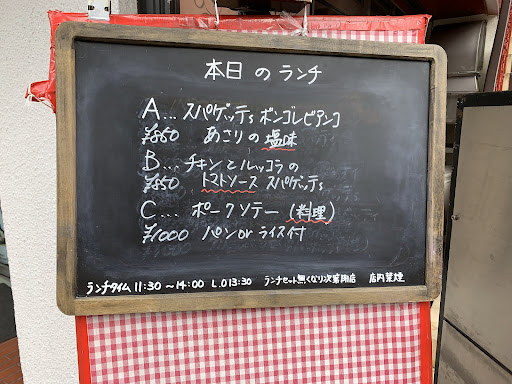 本日のランチ
A... スパゲッティ ボンゴレビアンコ
¥850 あさりの塩味
B... チキンとルッコラの
¥850 トマトソース スパゲッティ
C... ポークソテー (料理)
¥1000 パン or ライス付
ランチタイム 11:30 ～14:00 L.O 13:30 ランチセット無くなり次第閉店 店内禁煙